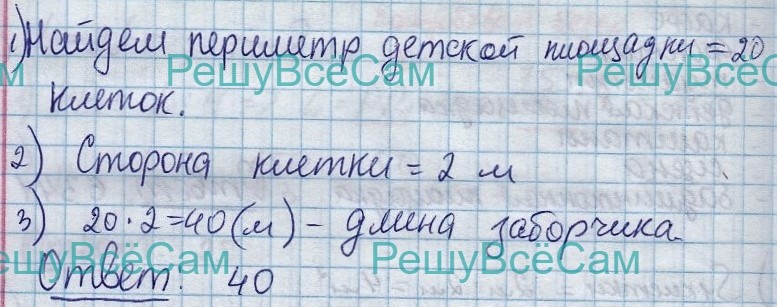 1) Найдем периметр детской площадки = 20
РешуВсёСам РешуВсёСам
клеток.
2) Сторона клетки = 2 м
3) 20 · 2 = 40 (м) – длина заборчика
ешуВсёСам РешуВсёСам
Ответ: 40